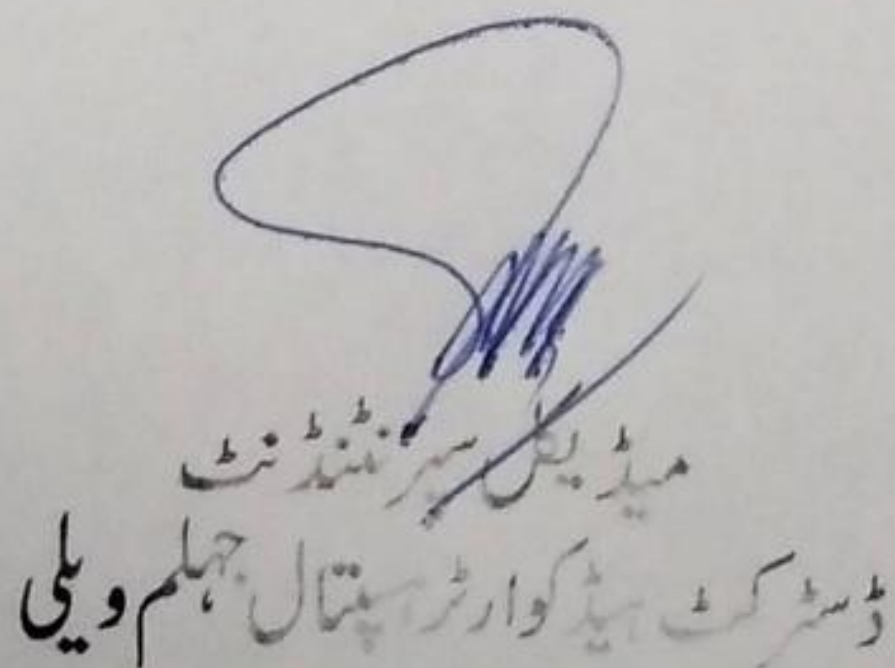 میڈیکل سپرنٹنڈنٹ
ڈسٹرکٹ ہیڈکوارٹر ہسپتال جہلم ویلی